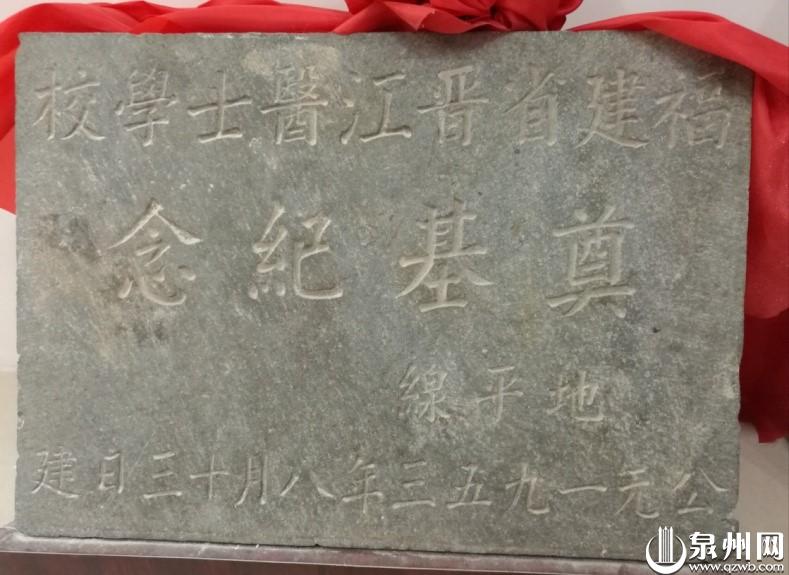 福建省晋江醫士學校
奠基紀念
地平線
公元一九五三年八月十三日建
泉州网
www.qzwb.com